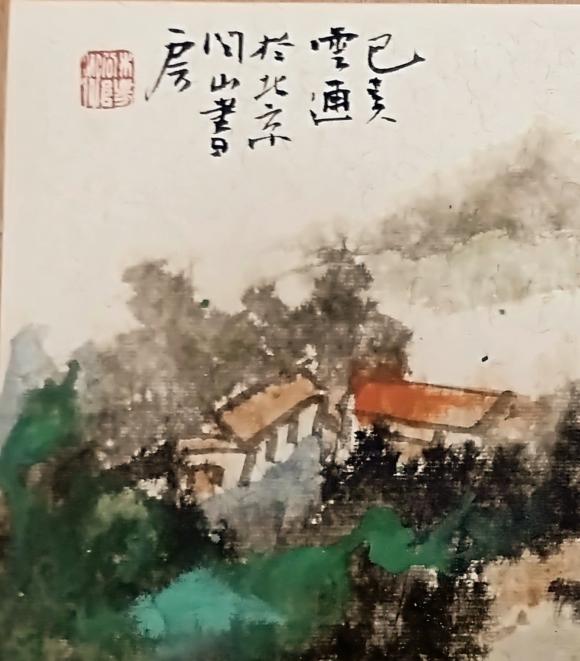 己亥
雲通
於北京
问山書
房